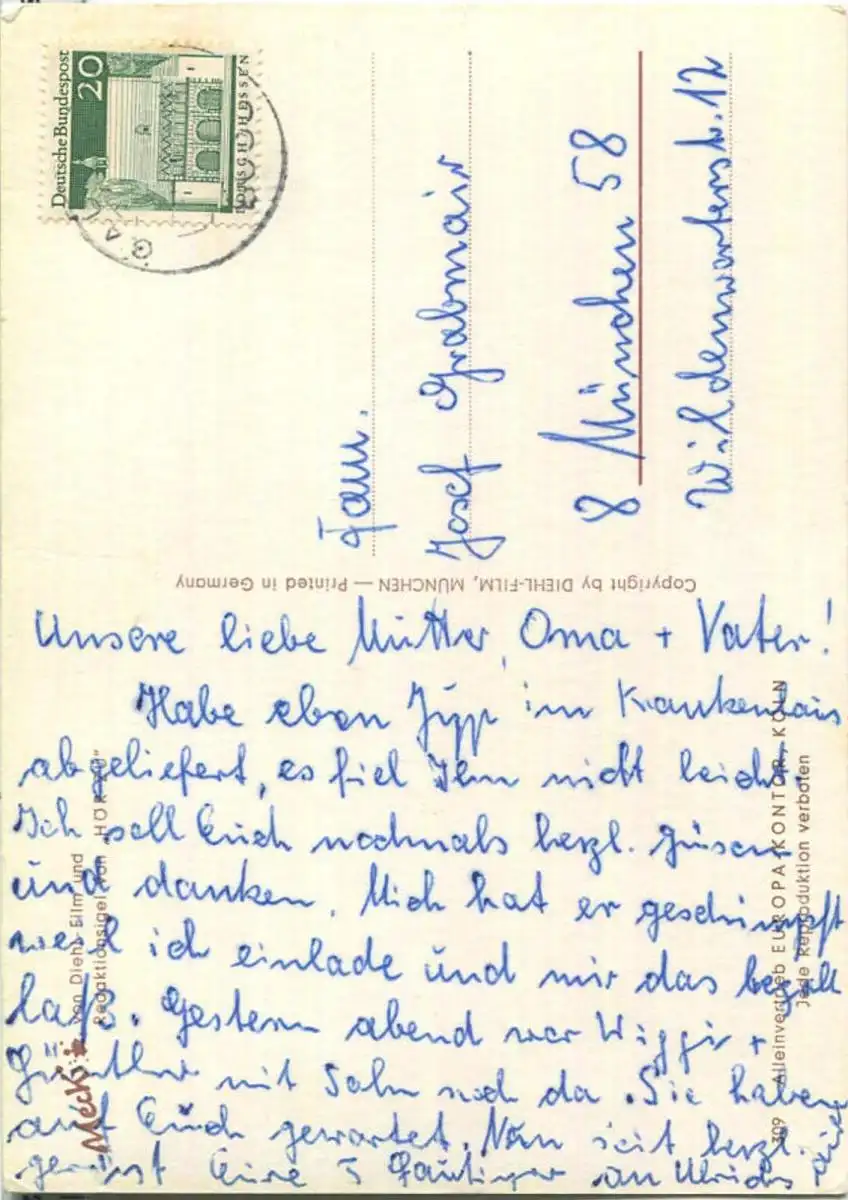 Deutsche Bundespost
20
LORSCH/HESSEN
Fam.
Josef Grabmair
8 München 58
Wildenwarterstr. 12
Copyright by DIEHL-FILM, MÜNCHEN — Printed in Germany
Unsere liebe Mutter, Oma + Vater!
Habe eben Jupp im Krankenhaus
abgeliefert, es fiel Ihm nicht leicht.
Ich soll Euch nochmals herzl. grüsen
und danken. Mich hat er geschimpft
weil ich einlade und mir das bezahlt
laß. Gestern abend war Wiggi +
Günther mit Sohn noch da. Sie haben
auf Euch gewartet. Nun seit herzl.
gegrüst Eure 5 Gautinger an Ulrichs
Mecki
von Diehl-Film und
Redaktionsigel von „HÖR ZU"
309 Alleinvertrieb EUROPA-KONTOR, KÖLN
Jede Reproduktion verboten